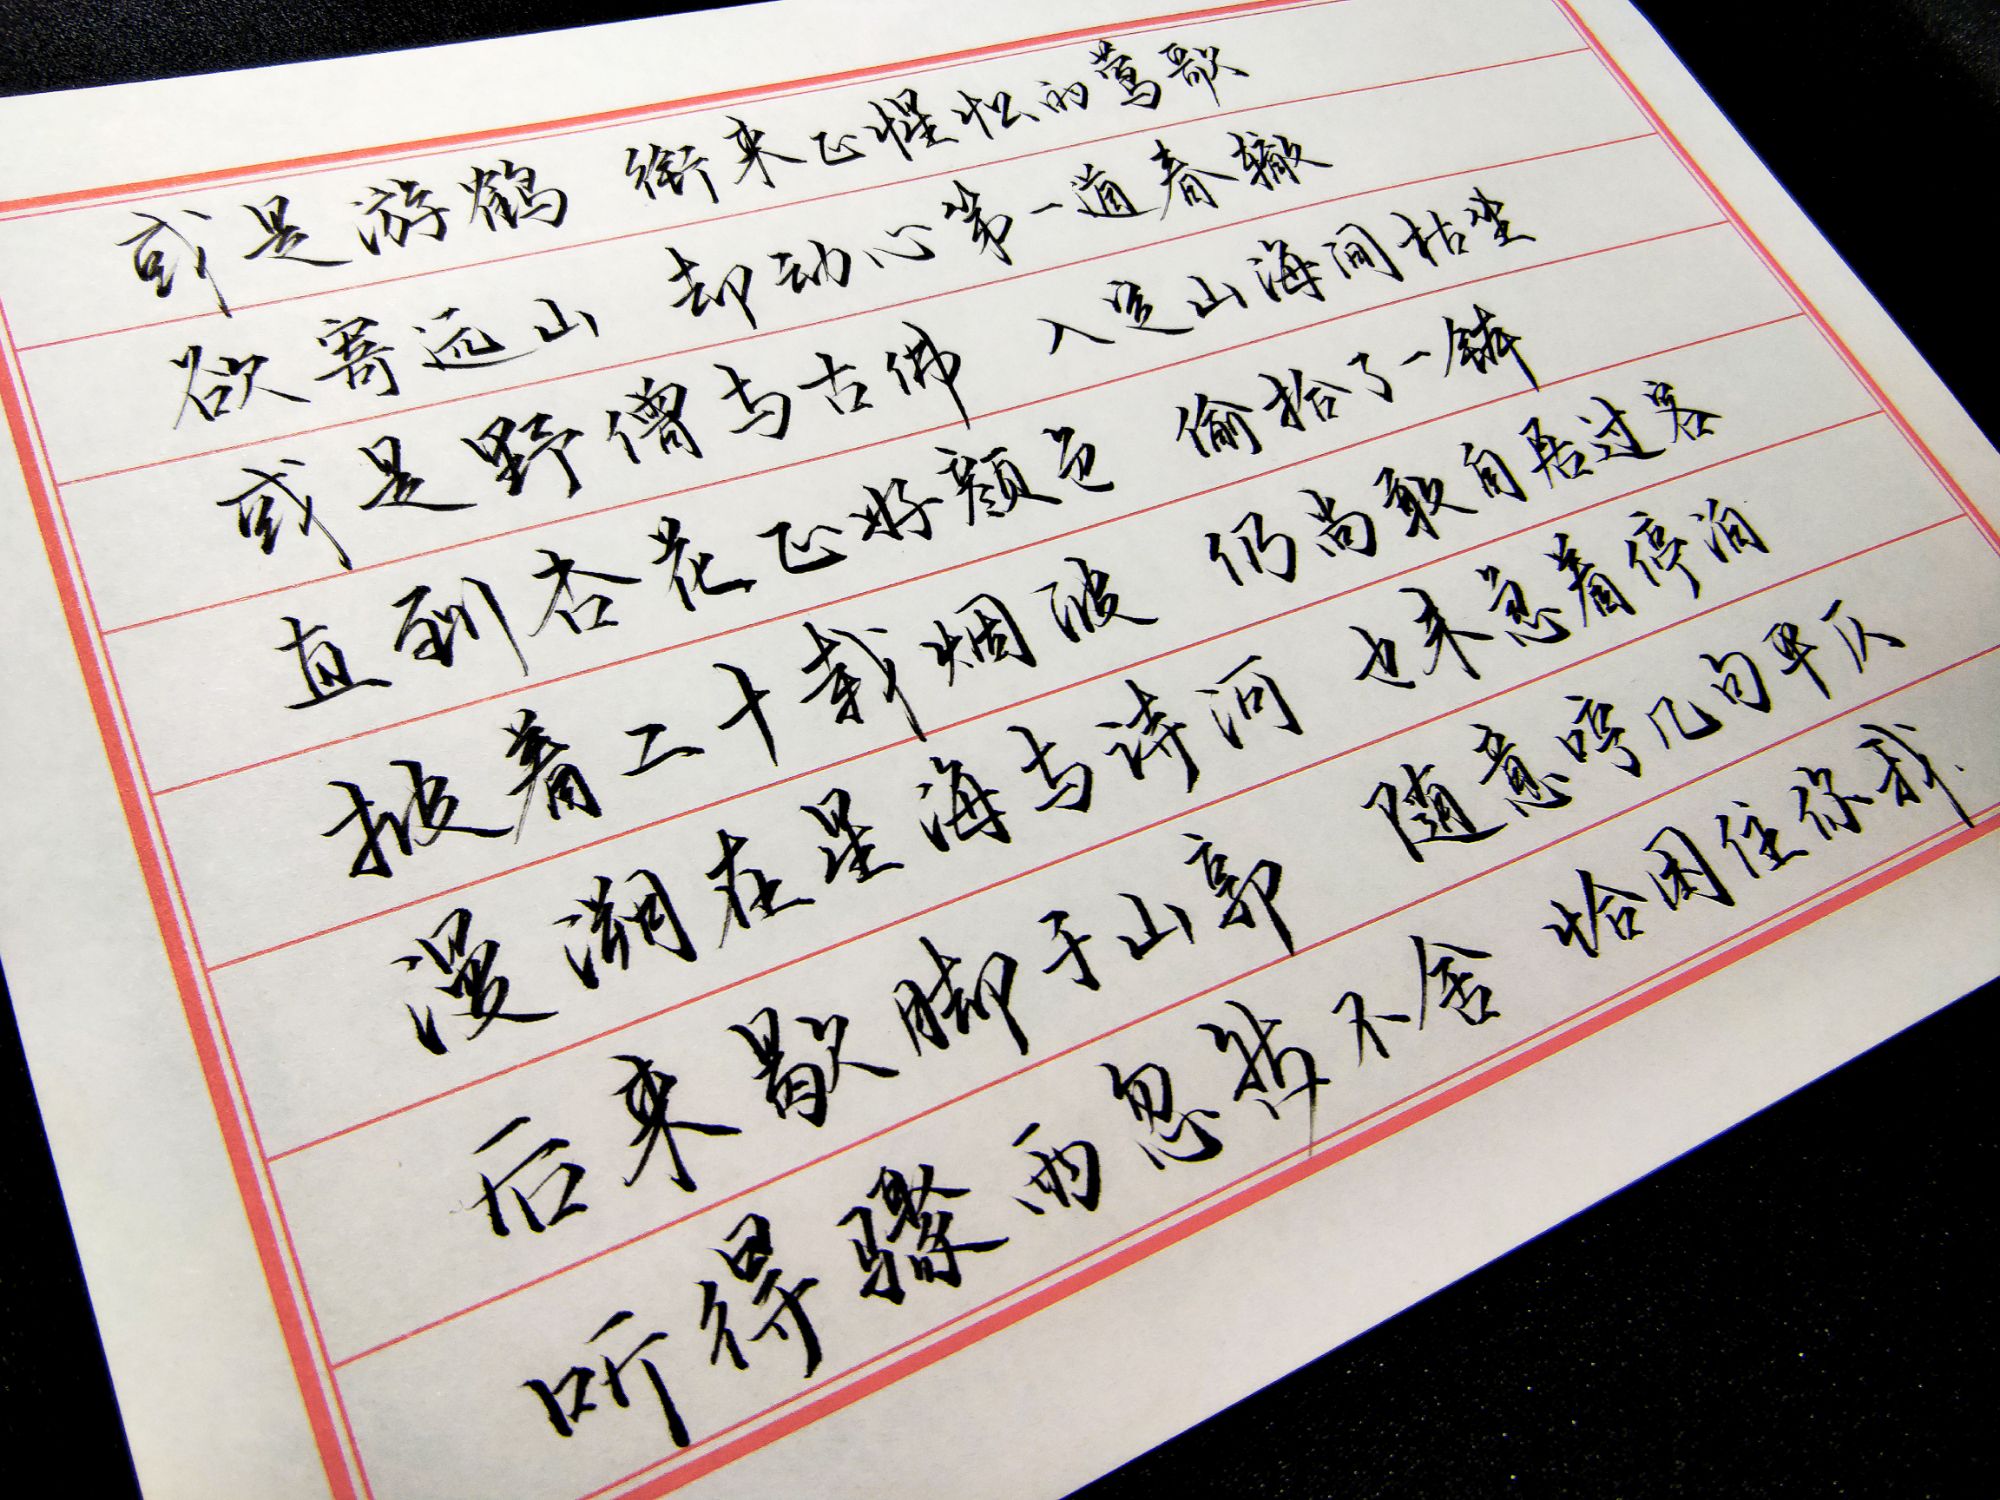 或是游鹤 衔来正惺忪的莺歌
欲寄远山 却动心第一道春辙
或是野僧与古佛 入定山海间枯坐
直到杏花正好颜色 偷拾了一钵
披着二十载烟波 仍尚敢自居过客
漫溯在星海与诗河 也未急着停泊
后来歇脚于山郭 随意哼几句平仄
听得骤雨忽转不舍 恰困住你我